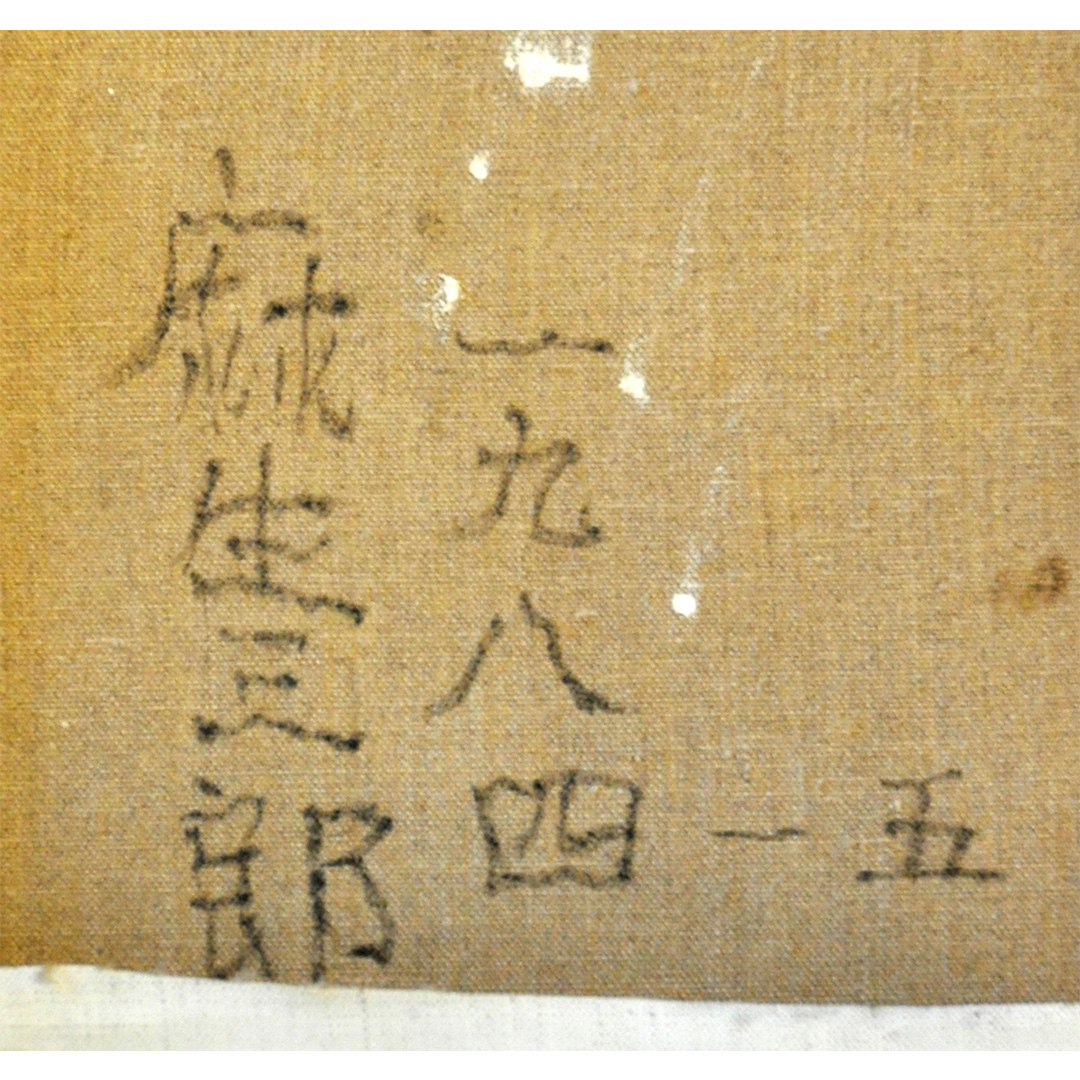 一九八四-五
麻生三郎